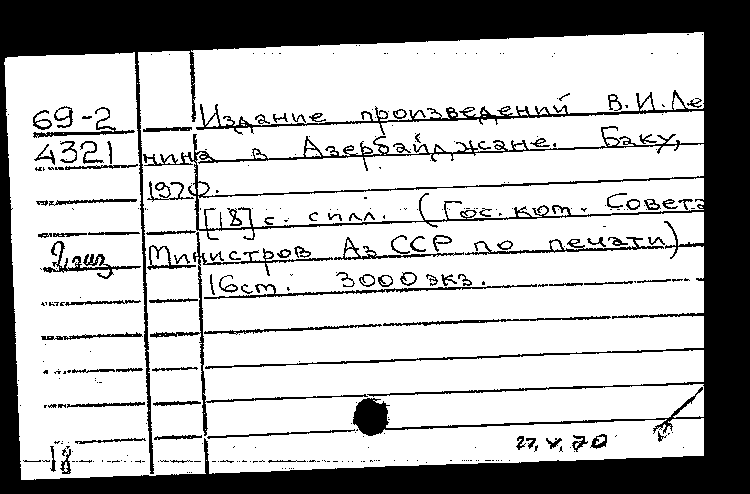 69-2 Издание произведений В.И.Ле
4321 нина в Азербайджане. Баку,
1970.
[18] с. с илл. (Гос. ком. Совета
2 экз Министров Аз ССР по печати)
16 см. 3000 экз.
27.V.70
18